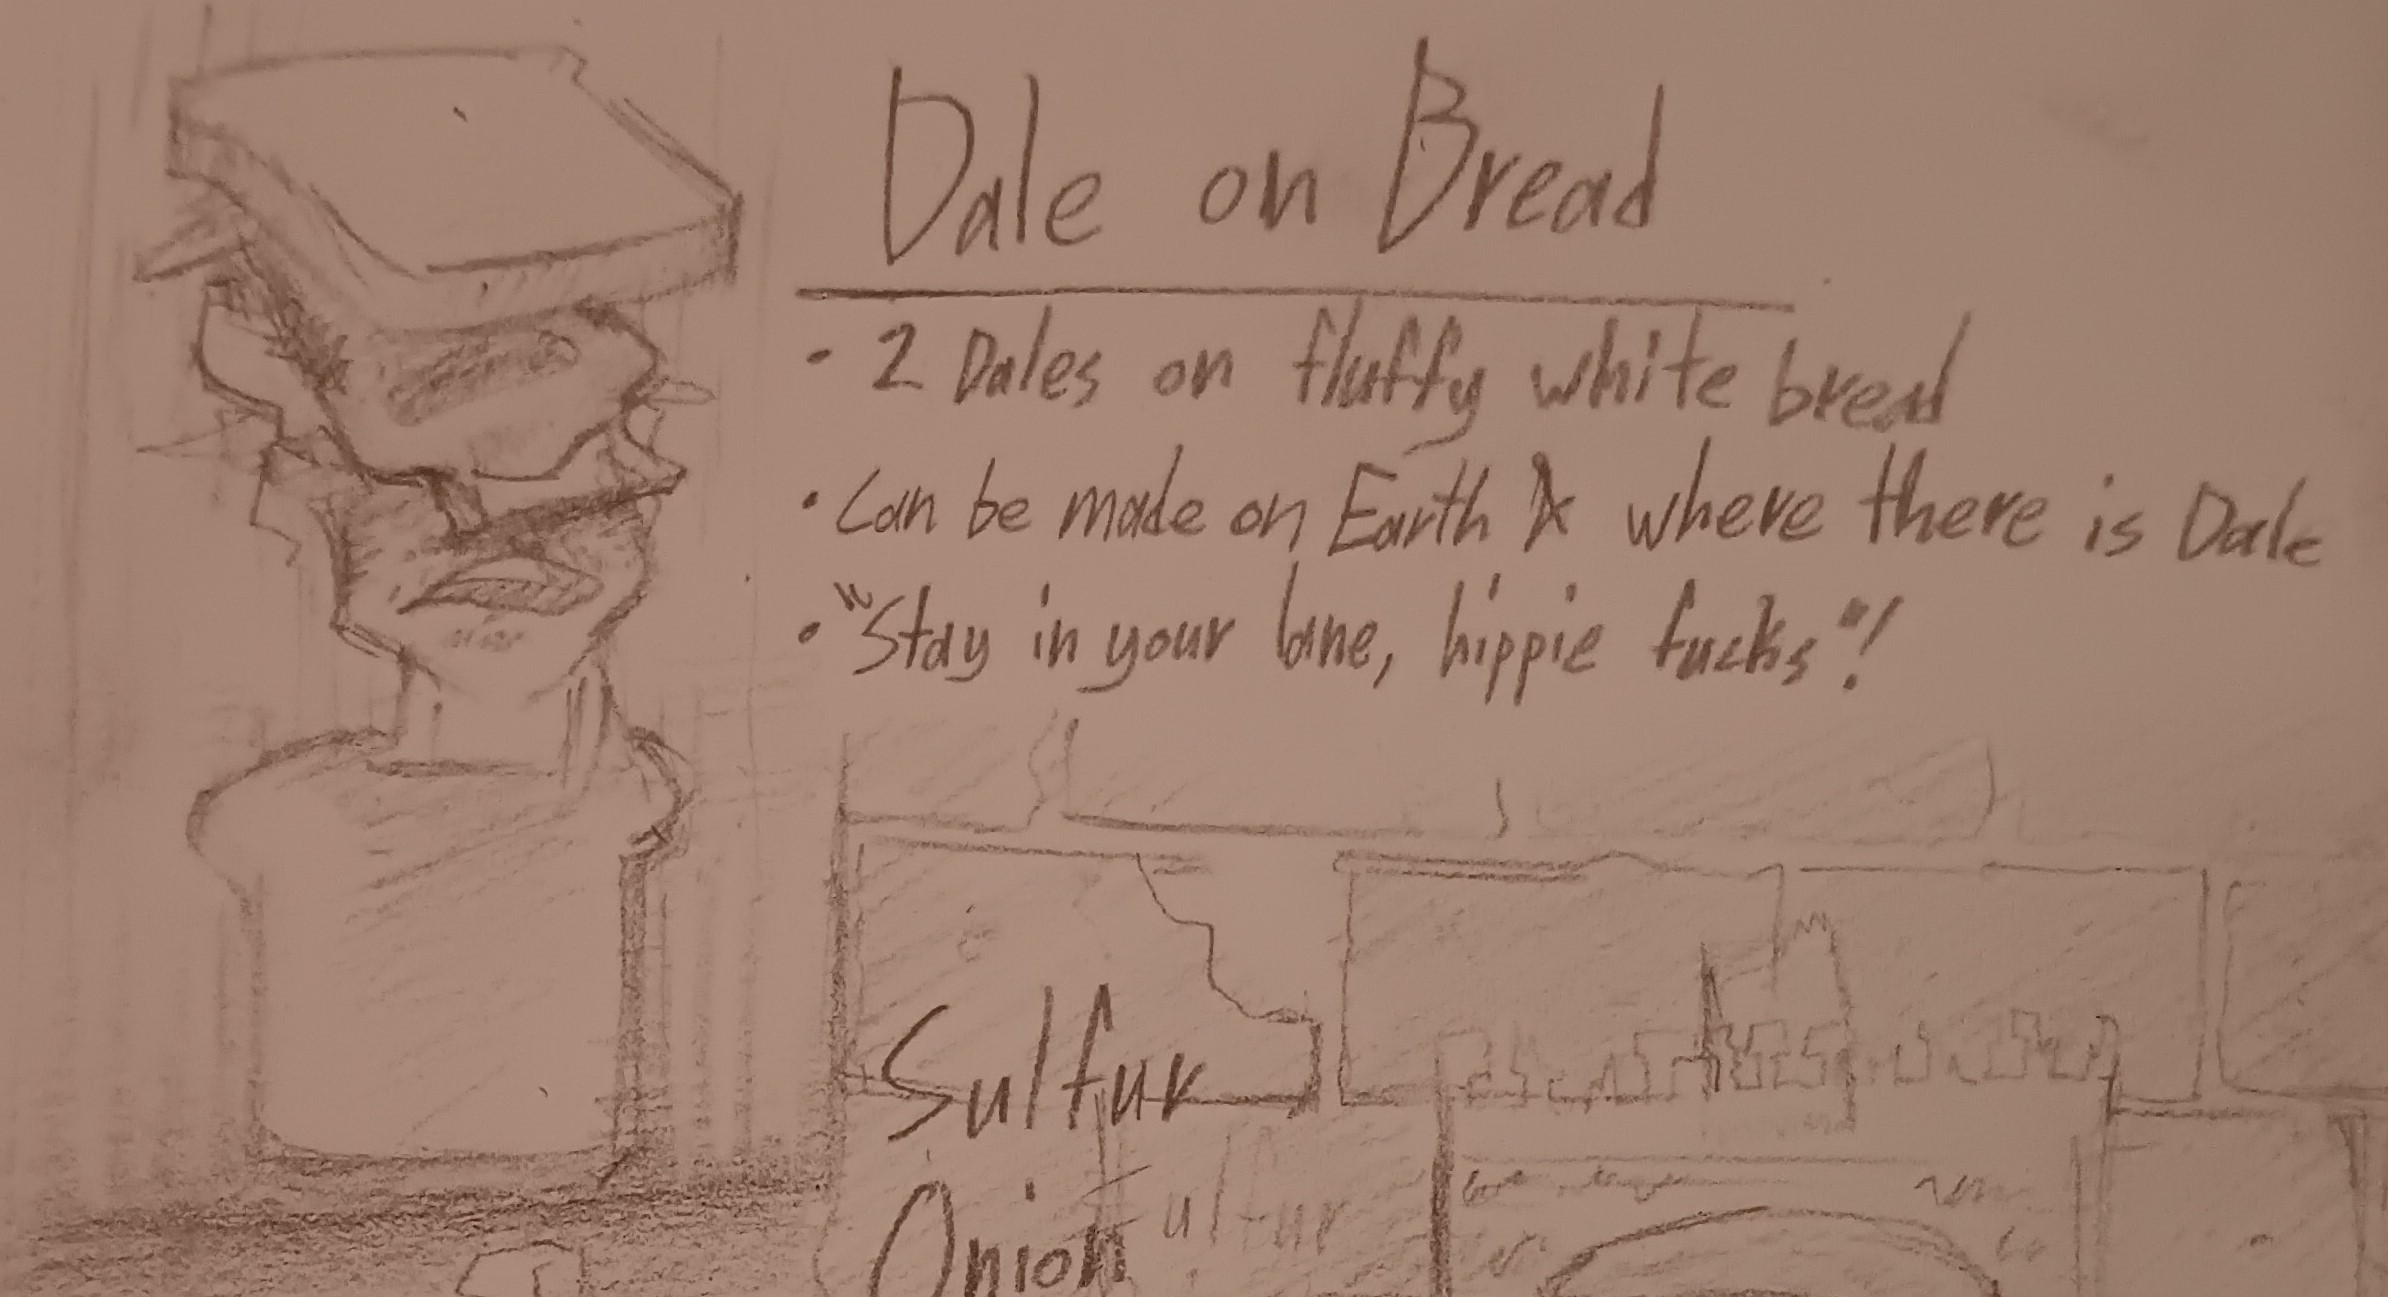 Dale on Bread
• 2 Dales on fluffy white bread
• Can be made on Earth where there is Dale
• "Stay in your lane, hippie fucks"!
Sulfur
Onion
ulfur